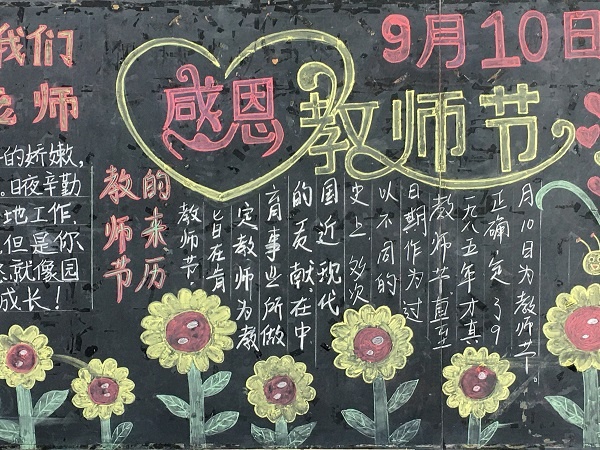 9月10日
感恩教师节
我们
师
的娇嫩,
日夜辛勤
地工作,
但是你
就像园
成长!
教师节
的来历
教师节,
旨在肯
定教师为教
育事业所做
的贡献在中
国近现代
史上多次
以不同的
日期作为过
教师节直至
一九八五年才真
正确定了9
月10日为教师节。